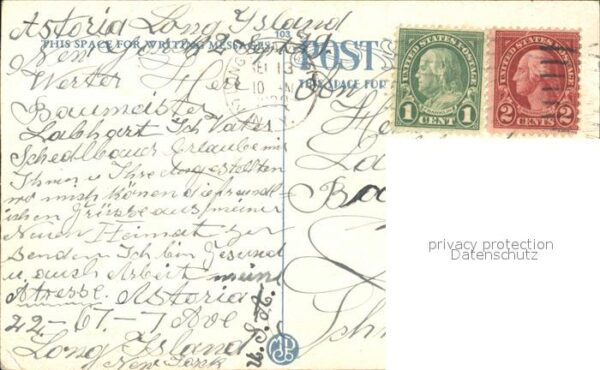 Astoria Long Island
103
THIS SPACE FOR WRITING MESSAGES
POST
THIS SPACE FOR
New York
Werter Herr
Baumeister
Labhart Ich Vater
Schedlbauer Erlaube mir
Ihnen u Ihre Angestellten
wo mich könen die freundl-
ichen Grüsse aus meiner
Neuen Heimat zu
senden Ich bin Gesund
u. auch Arbeit meine
Atresse. Astoria
22-67-7 Ave
Long Island
New York
U.S.A.
UNITED STATES POSTAGE
FRANKLIN
1 CENT 1
UNITED STATES POSTAGE
2 CENTS 2
He
La
Ba
Sch
privacy protection
Datenschutz